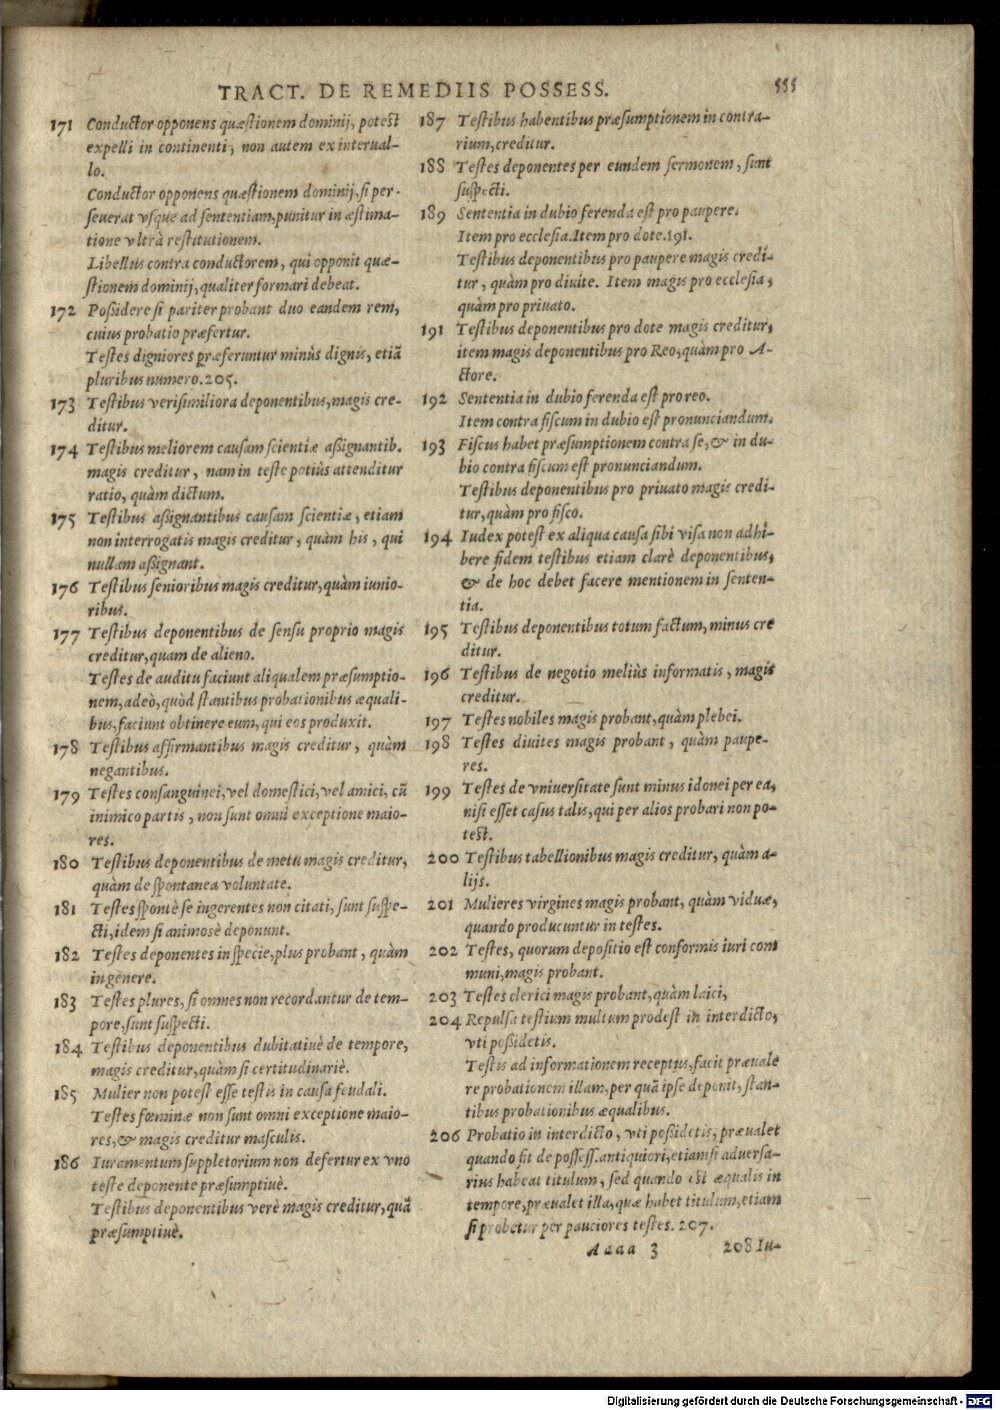 TRACT. DE REMEDIIS POSSESS. 555
171 Conductor opponens quæstionem dominij, potest
expelli in continenti, non autem ex interual-
lo.
Conductor opponens quæstionem dominij, si per-
seuerat vsque ad sententiam, punitur in æstima-
tione vltrà restitutionem.
Libellus contra conductorem, qui opponit quæ-
stionem dominij, qualiter formari debeat.
172 Possidere si pariter probant duo eandem rem,
cuius probatio præfertur.
Testes digniores præferuntur minùs dignis, etiã
pluribus numero. 205.
173 Testibus verisimiliora deponentibus, magis cre-
ditur.
174 Testibus meliorem causam scientiæ assignantib.
magis creditur, nam in teste potiùs attenditur
ratio, quàm dictum.
175 Testibus assignantibus causam scientiæ, etiam
non interrogatis magis creditur, quàm his, qui
nullam assignant.
176 Testibus senioribus magis creditur, quàm iunio-
ribus.
177 Testibus deponentibus de sensu proprio magis
creditur, quam de alieno.
Testes de auditu faciunt aliqualem præsumptio-
nem, adeò, quòd stantibus probationibus æquali-
bus, faciunt obtinere eum, qui eos produxit.
178 Testibus affirmantibus magis creditur, quàm
negantibus.
179 Testes consanguinei, vel domestici, vel amici, cũ
inimico partis, non sunt omni exceptione maio-
res.
180 Testibus deponentibus de metu magis creditur,
quàm de spontanea voluntate.
181 Testes spontè se ingerentes non citati, sunt suspe-
cti, idem si animosè deponunt.
182 Testes deponentes in specie, plus probant, quàm
in genere.
183 Testes plures, si omnes non recordantur de tem-
pore, sunt suspecti.
184 Testibus deponentibus dubitatiuè de tempore,
magis creditur, quàm si certitudinariè.
185 Mulier non potest esse testis in causa feudali.
Testes fœminæ non sunt omni exceptione maio-
res, & magis creditur masculis.
186 Iuramentum suppletorium non defertur ex vno
teste deponente præsumptiuè.
Testibus deponentibus verè magis creditur, quã
præsumptiuè.
187 Testibus habentibus præsumptionem in contra-
rium, creditur.
188 Testes deponentes per eundem sermonem, sunt
suspecti.
189 Sententia in dubio ferenda est pro paupere.
Item pro ecclesia. Item pro dote. 191.
Testibus deponentibus pro paupere magis credi-
tur, quàm pro diuite. Item magis pro ecclesia,
quàm pro priuato.
191 Testibus deponentibus pro dote magis creditur,
item magis deponentibus pro Reo, quàm pro A-
ctore.
192 Sententia in dubio ferenda est pro reo.
Item contra fiscum in dubio est pronunciandum.
193 Fiscus habet præsumptionem contra se, & in du-
bio contra fiscum est pronunciandum.
Testibus deponentibus pro priuato magis credi-
tur, quàm pro fisco.
194 Iudex potest ex aliqua causa sibi visa non adhi-
bere fidem testibus etiam clarè deponentibus,
& de hoc debet facere mentionem in senten-
tia.
195 Testibus deponentibus totum factum, minus cre
ditur.
196 Testibus de negotio meliùs informatis, magis
creditur.
197 Testes nobiles magis probant, quàm plebei.
198 Testes diuites magis probant, quàm paupe-
res.
199 Testes de vniuersitate sunt minus idonei per ea,
nisi esset casus talis, qui per alios probari non po-
test.
200 Testibus tabellionibus magis creditur, quàm a-
lijs.
201 Mulieres virgines magis probant, quàm viduæ,
quando producuntur in testes.
202 Testes, quorum depositio est conformis iuri com
muni, magis probant.
203 Testes clerici magis probant, quàm laici,
204 Repulsa testium multum prodest in interdicto,
vti possidetis.
Testis ad informationem receptus, facit præuale
re probationem illam, per quã ipse deponit, stan-
tibus probationibus æqualibus.
206 Probatio in interdicto, vti possidetis, præualet
quando fit de possess. antiquiori, etiam si aduersa-
rius habeat titulum, sed quando est æqualis in
tempore, præualet illa, quæ habet titulum, etiam
si probetur per pauciores testes. 207.
Aaaa 3 208 Iu-
Digitalisierung gefördert durch die Deutsche Forschungsgemeinschaft - DFG